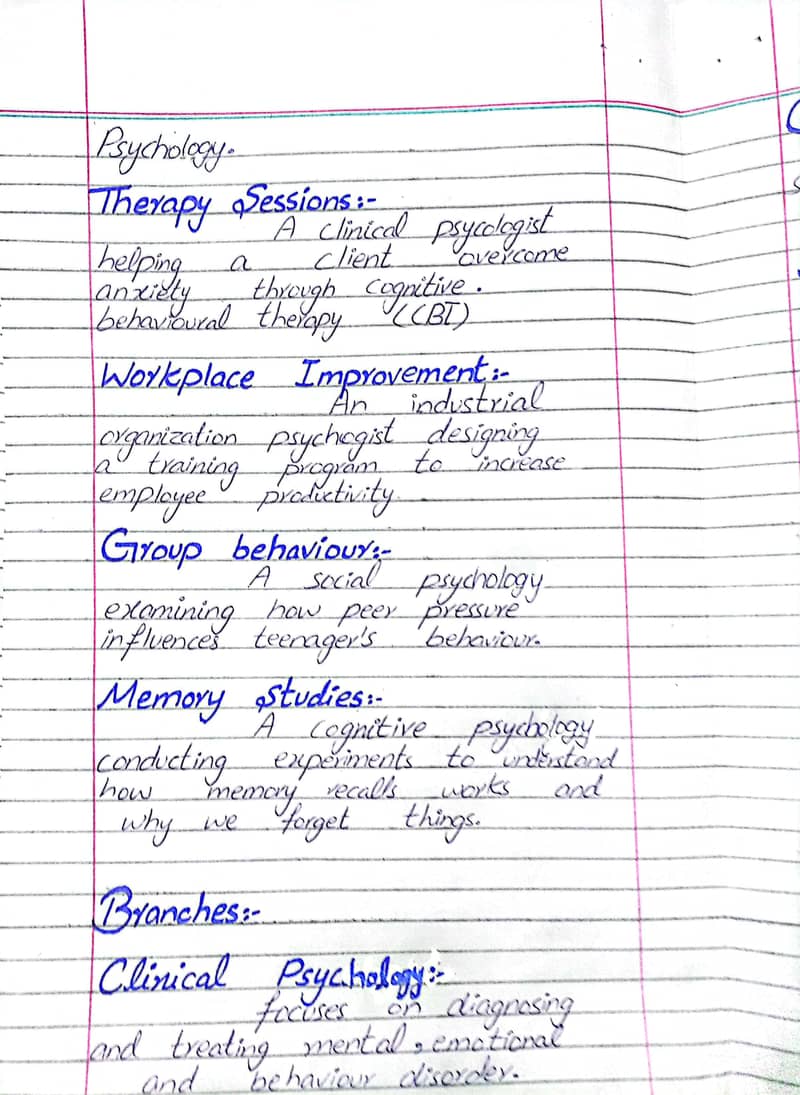 Psychology.
Therapy Sessions:-
A clinical psycologist
helping a client overcome
anxiety through cognitive.
behavioural therapy (CBT)
Workplace Improvement:-
An industrial
organization psychogist designing
a training program to increase
employee productivity.
Group behaviour:-
A social psychology
examining how peer pressure
influences teenager's behaviour.
Memory Studies:-
A cognitive psychology
conducting experiments to understand
how memory recalls works and
why we forget things.
Branches:-
Clinical Psychology:-
focuses on diagnosing
and treating mental, emotional
and behaviour disorder.